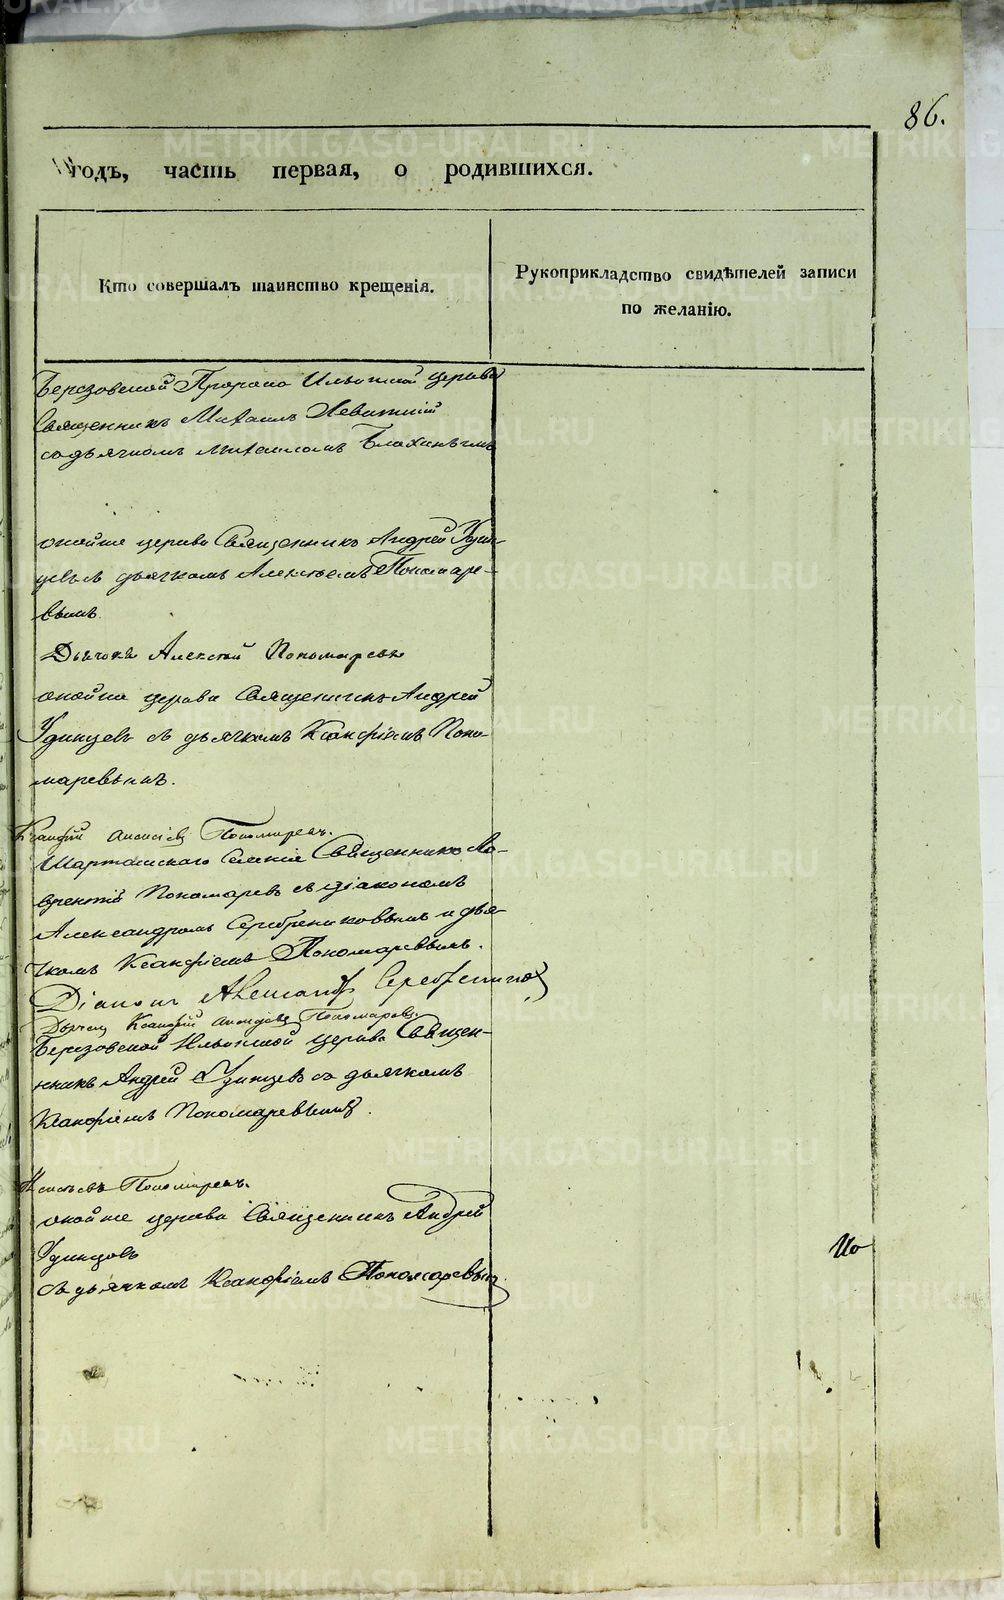 86.
годъ, часть первая, о родившихся.
Кто совершалъ таинство крещенія.
Рукоприкладство свидѣтелей записи
по желанію.
Березовской Пророко Ильинской церкви
Священникъ Михаилъ Левитскій
содьячкомъ Михаиломъ
онойже церкви Священникъ Андрей Удин-
цевъ съ дьячкомъ Алексѣемъ Пономаре-
вымъ.
Дьячокъ Алексѣй Пономаревъ
онойже церкви Священникъ Андрей
Удинцевъ съ дьячкомъ Ксанфіемъ Поно-
маревымъ.
Ксанфій Пономаревъ.
Шарташскаго Селенія Священникъ Ла-
врентій Пономаревъ съ діакономъ
Александромъ Серебрениковымъ и дья-
чкомъ Ксанфіемъ Пономаревымъ.
Діаконъ Александръ Серебрениковъ
Дьячекъ Ксанфій Пономаревъ.
Березовской Ильинской церкви Священ-
никъ Андрей Удинцевъ съ дьячкомъ
Ксанфіемъ Пономаревымъ.
Пономаревъ.
онойже церкви Священникъ Андрей
Удинцовъ
съ дьячкомъ Ксанфіемъ Пономаревым.